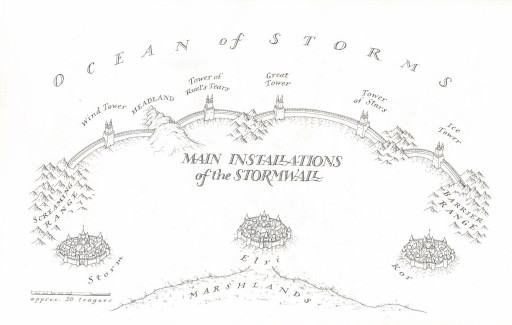 OCEAN of STORMS
Wind Tower
HEADLAND
Tower of
Ruel's Tears
Great
Tower
Tower
of Stars
Ice
Tower
MAIN INSTALLATIONS
of the STORMWALL
SCREAMING
RANGE
BARRIER
RANGE
Storm
Elri
Kor
MARSHLANDS
approx. 20 leagues